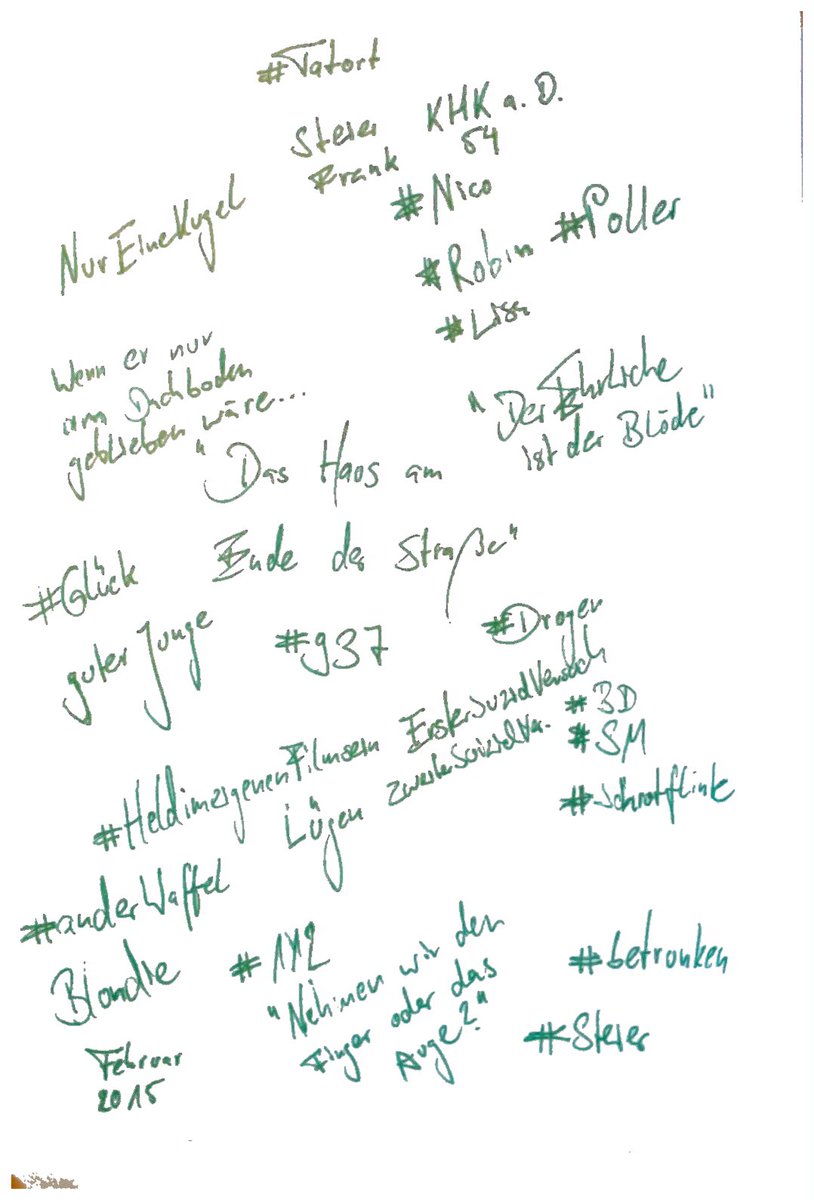 #Tatort
Steier KHK a. D.
Frank 54
#Nico
NurEineKugel
#Robin #Poller
#Lisa
Wenn er nur
am Dachboden
geblieben wäre...
"Der Ehrliche
ist der Blöde"
"Das Haus am
Ende der Straße"
#Glück
guter Junge
#937
#Drogen
#3D
#SM
#Schrotflinte
#HeldimeigenenFilmsein
ErsterSuizidVersuch
Lügen
zweiterSuizidVer.
#anderWaffel
Blondie
#1X2
"Nehmen wir den
Finger oder das
Auge?"
#betrunken
#Steier
Februar
2015